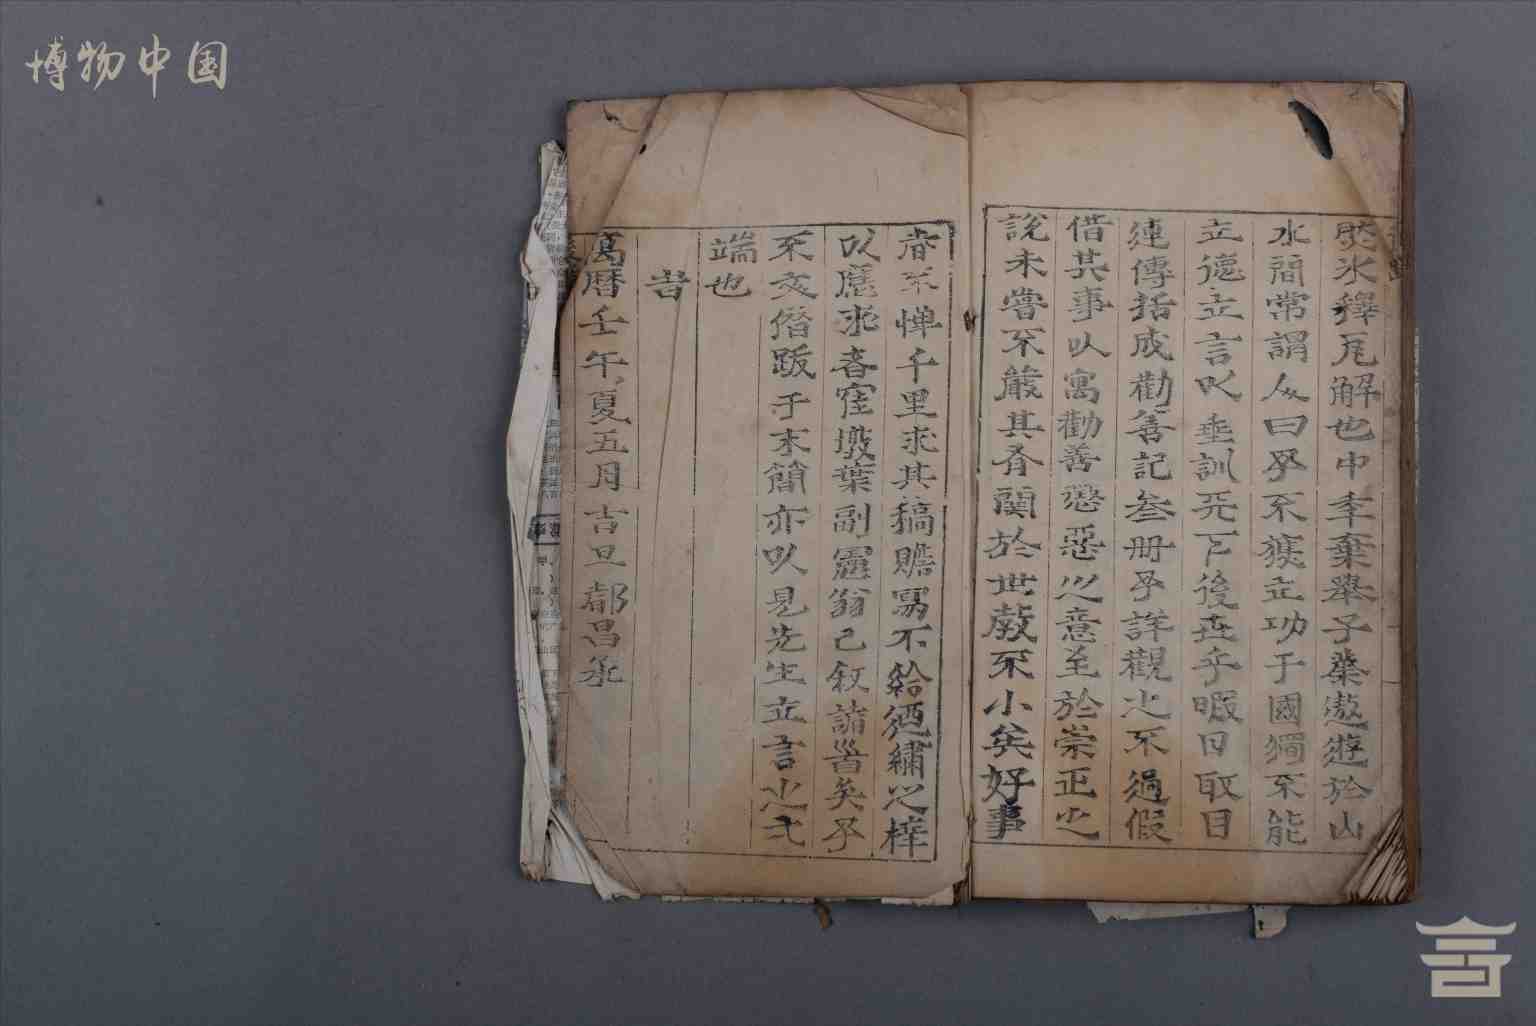 博物中国
然氷釋瓦解也中年棄舉子業遨遊於山
水間常謂人曰吾不獲立功于國獨不能
立德立言以垂訓天下後世乎暇日取日
連傳括成勸善記叁册予詳觀之不過假
借其事以寓勸善懲惡之意至於崇正之
說未嘗不嚴其有関於世教不小矣好事
者不憚千里求其稿贍寫不給迺繡之梓
以應求者窪墩葉副憲翁已叙諸首矣予
不文僭跋于末簡亦以見先生立言之弍
端也
旹
萬曆壬午夏五月吉旦都昌